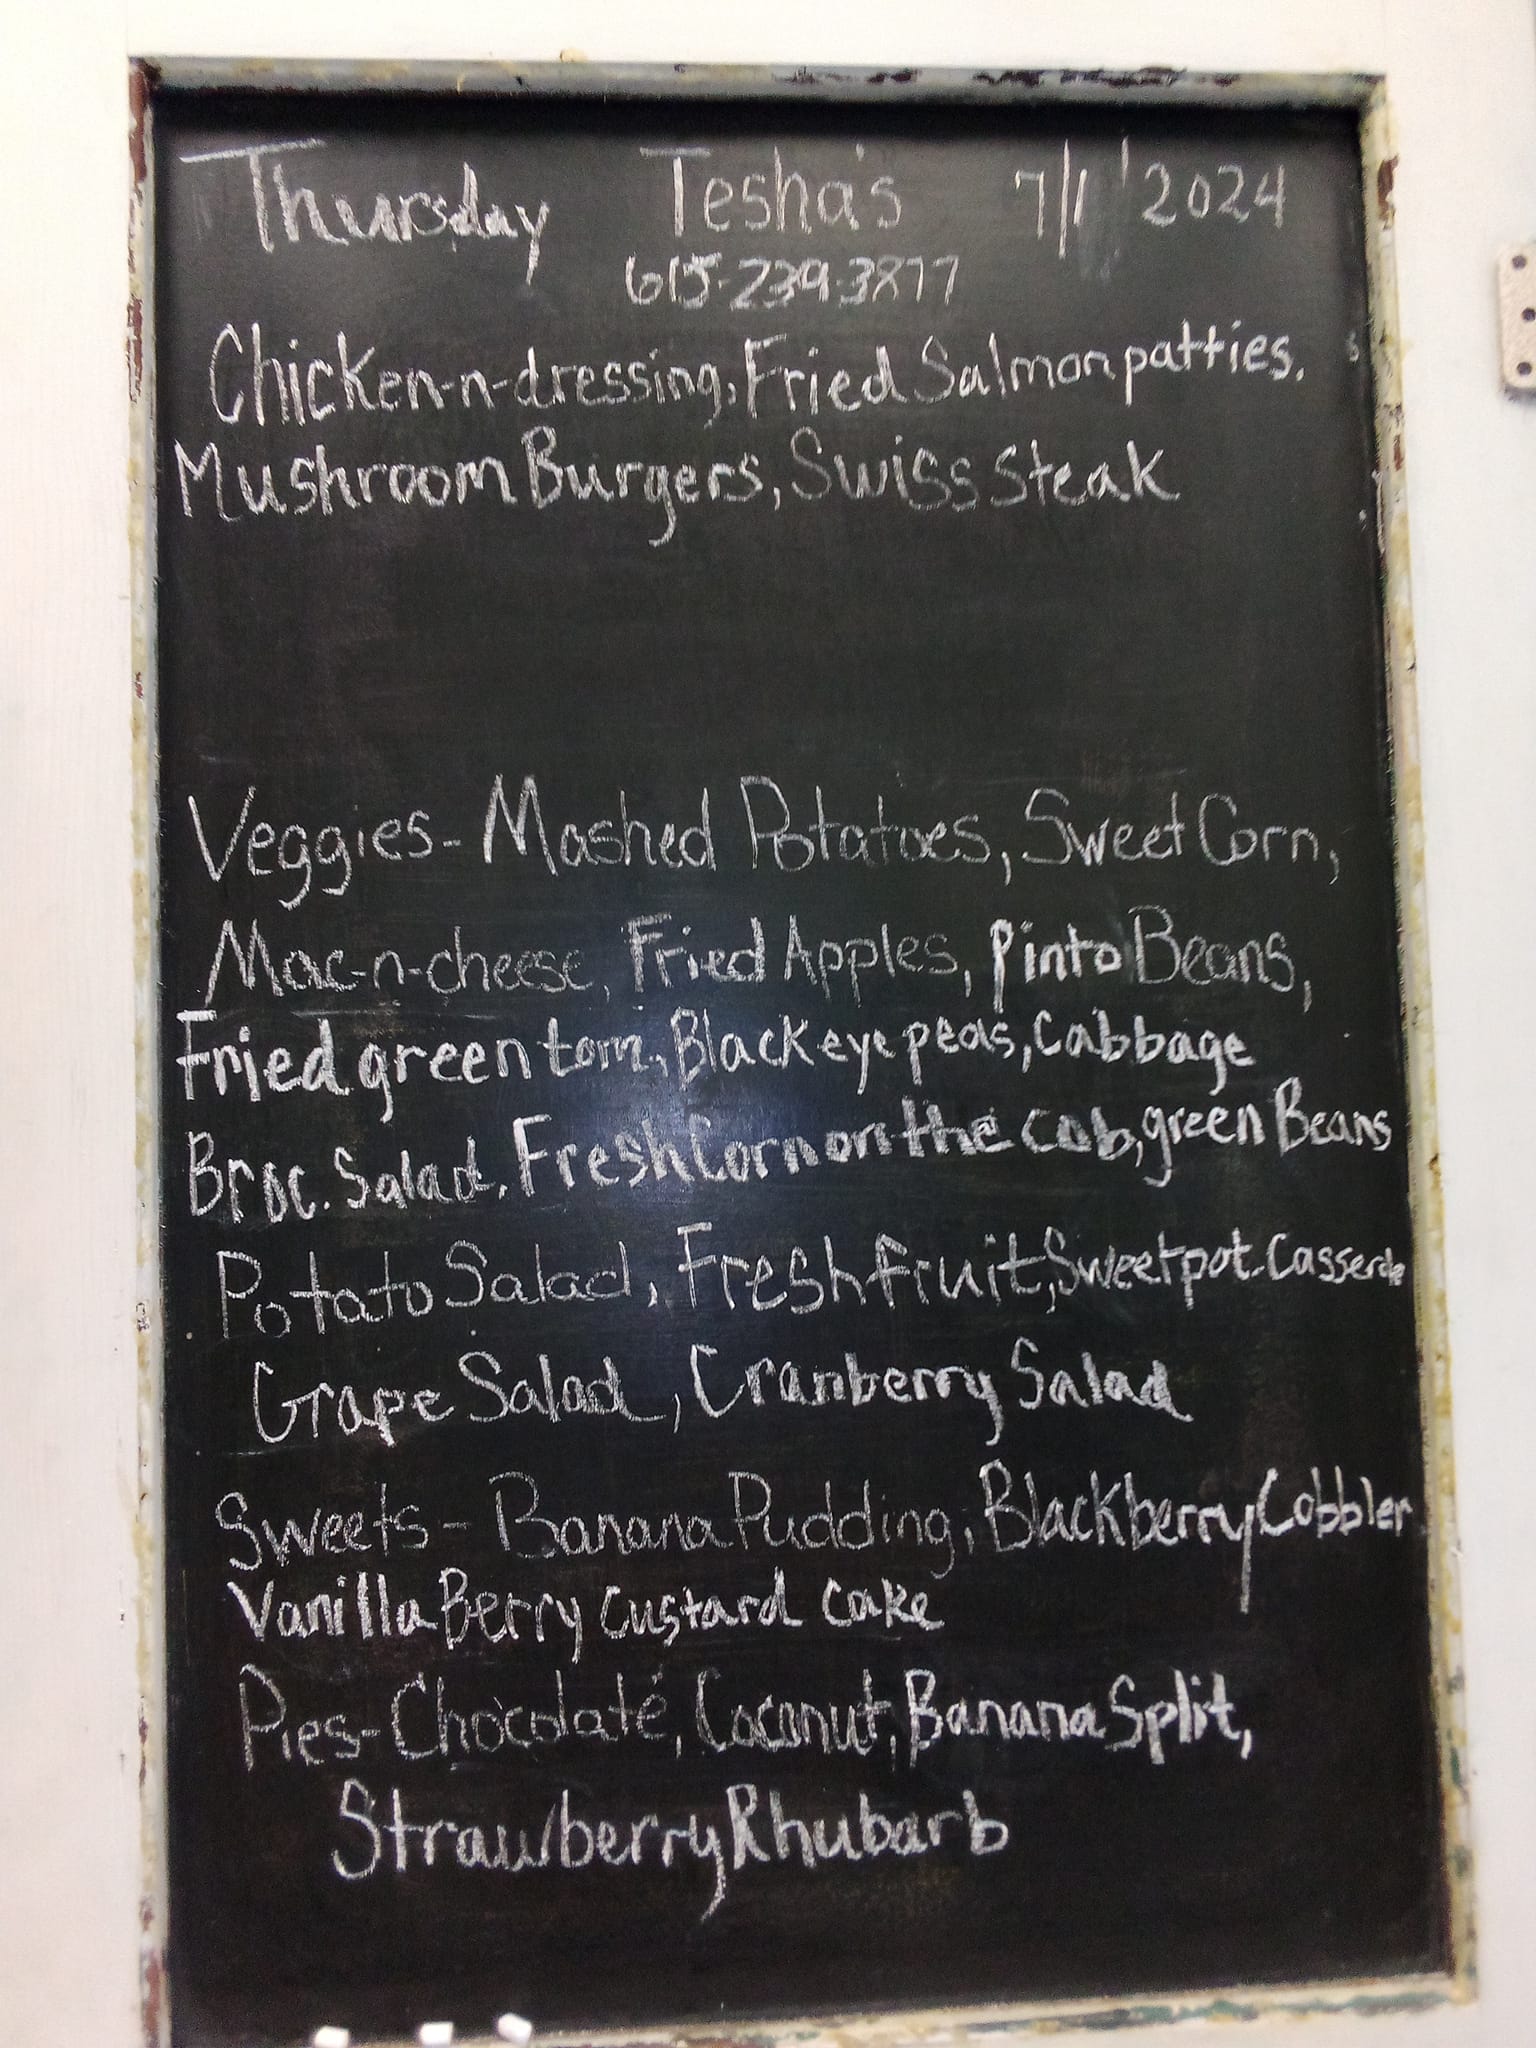 Thursday Tesha's 7/1/2024
615-239-3877
Chicken-n-dressing, Fried Salmon patties,
Mushroom Burgers, Swiss Steak
Veggies- Mashed Potatoes, Sweet Corn,
Mac-n-cheese, Fried Apples, Pinto Beans,
Fried green tom, Black eye peas, Cabbage
Broc. Salad, Fresh Corn on the cob, green Beans
Potato Salad, Fresh fruit, Sweet pot. Casserole
Grape Salad, Cranberry Salad
Sweets - Banana Pudding, Blackberry Cobbler
Vanilla Berry Custard Cake
Pies- Chocolate, Coconut, Banana Split,
Strawberry Rhubarb